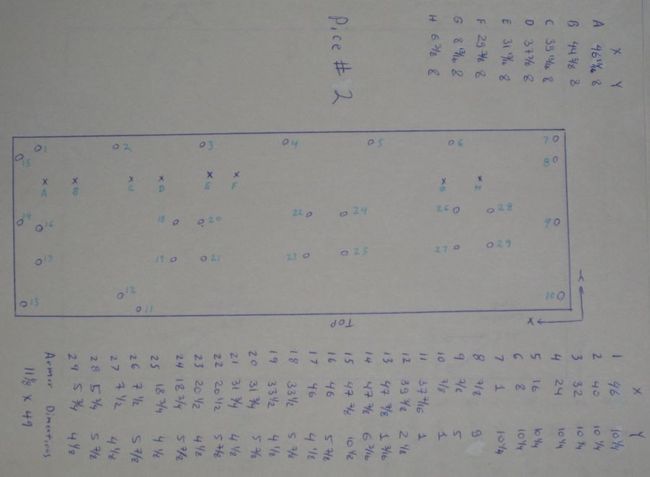 X Y
A 46 11/16 8
B 44 3/8 8
C 8
D 37 8
E 31 9/16 8
F 25 3/8 8
G 8 9/16 8
H 6 7/8 8
Pice # 2
1
2
3
4
5
6
7
8
15
A
B
C
D
E
F
G
H
14
16
18
20
22
24
26
28
9
17
19
21
23
25
27
29
13
12
11
10
Y
X
TOP
X Y
1 46 10 1/4
2 40 10 1/4
3 32 10 1/4
4 24 10 1/4
5 16 10 1/4
6 8 10 1/4
7 1 10 1/4
8 7/8 9
9 7/8 5
10 1/2 1
11 37 7/16 1
12 39 1/2 2 1/2
13 47 7/8 1 3/16
14 47 7/8 6 7/16
15 47 7/8 10 1/2
16 46 5 7/8
17 46 4 1/2
18 33 1/2 5 7/8
19 33 1/2 4 1/2
20 31 3/4 5 7/8
21 31 3/4 4 1/2
22 20 1/2 5 7/8
23 20 1/2 4 1/2
24 18 3/4 5 7/8
25 18 3/4 4 1/2
26 7 1/2 5 7/8
27 7 1/2 4 1/2
28 5 3/4 5 7/8
29 5 3/4 4 1/2
Armor Dimentions
11 1/8 x 49